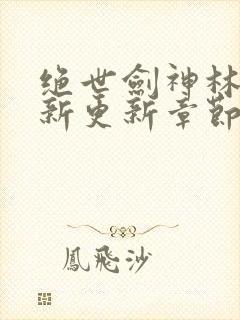 绝世劍神林
新更新章節
鳳飛沙